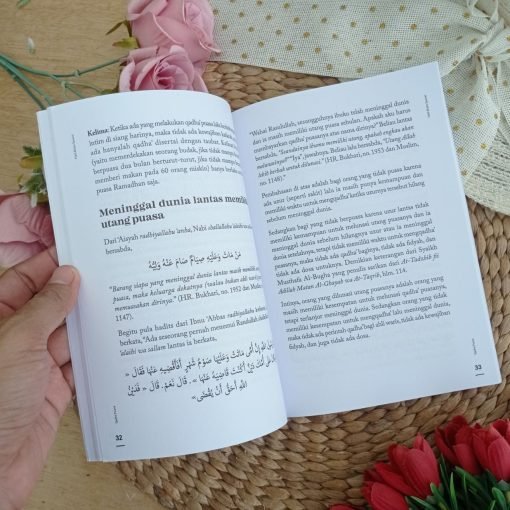 Kelima: Ketika ada yang melakukan qadha' puasa
intim di siang harinya, maka tidak ada kewajiban
ada hanyalah qadha' disertai dengan taubat. Kafaroh
(yaitu memerdekakan seorang budak, jika tidak
puasa dua bulan berturut-turut, jika tidak
memberi makan pada 60 orang miskin) hanyalah
puasa Ramadhan saja.
Meninggal dunia lantas memiliki
utang puasa
Dari 'Aisyah radhiyallahu 'anha, Nabi shallallahu
bersabda,
مَنْ مَاتَ وَعَلَيْهِ صِيَامٌ صَامَ عَنْهُ وَلِيُّهُ
"Barang siapa yang meninggal dunia lantas masih memiliki
puasa, maka keluarga dekatnya
menunaikan dirinya." (HR. Bukhari, no. 1952 dan Muslim
1147).
Begitu pula hadits dari Ibnu 'Abbas radhiyallahu
berkata, "Ada seseorang pernah menemui Rasulullah
'alaihi wa sallam lantas ia berkata,
اللهِ إِنَّ أُمِّى مَاتَتْ وَعَلَيْهَا صَوْمُ شَهْرٍ أَفَأَقْضِيهِ عَنْهَا فَقَالَ «
عَلَى أُمِّكَ دَيْنٌ أَكُنْتَ قَاضِيَهُ عَنْهَا ». قَالَ نَعَمْ. قَالَ « فَدَيْنُ
اللهِ أَحَقُّ أَنْ يُقْضَى »
32
"Wahai Rasulullah, sesungguhnya ibuku telah meninggal dunia
dan ia masih memiliki utang puasa sebulan. Apakah aku harus
menunaikan qadha' puasanya atas nama dirinya?" Beliau lantas
bersabda, "Seandainya ibumu memiliki utang, apakah engkau akan
melunasinya?" "Iya", jawabnya. Beliau lalu bersabda, "Utang Allah
lebih berhak untuk dilunasi." (HR. Bukhari, no. 1953 dan Muslim,
no. 1148)."
Pembahasan di atas adalah bagi orang yang tidak puasa karena
ada uzur (seperti sakit) lalu ia masih punya kemampuan dan
memiliki waktu untuk mengqadha'nya ketika uzurnya tetap hilang
sebelum meninggal dunia.
Sedangkan bagi yang tidak berpuasa karena uzur lantas tidak
memiliki kemampuan untuk menunaikan utang puasanya dan ia
dunia setelahnya, tetapi tidak memiliki waktu untuk
puasa, maka tidak ada qadha' baginya, tidak ada fidyah, dan
tidak ada dosa untuknya. Demikian keterangan dari Syaikh
Musthafa Al-Bugha yang penulis sarikan dari At-Tadzhib fii
Adillah Matan Al-Ghayah wa At-Taqrib, hlm. 114.
Intinya, orang yang dimaafi utang puasanya adalah orang yang
masih memiliki kesempatan untuk mengqadha' puasanya, namun
tetap terlanjur meninggal dunia. Sedangkan orang yang tidak
memiliki kesempatan untuk mengqadha' lalu meninggal dunia,
maka tidak perlu ada qadha' bagi ahli waris, tidak ada kewajiban
fidyah, dan juga tidak ada dosa.
33